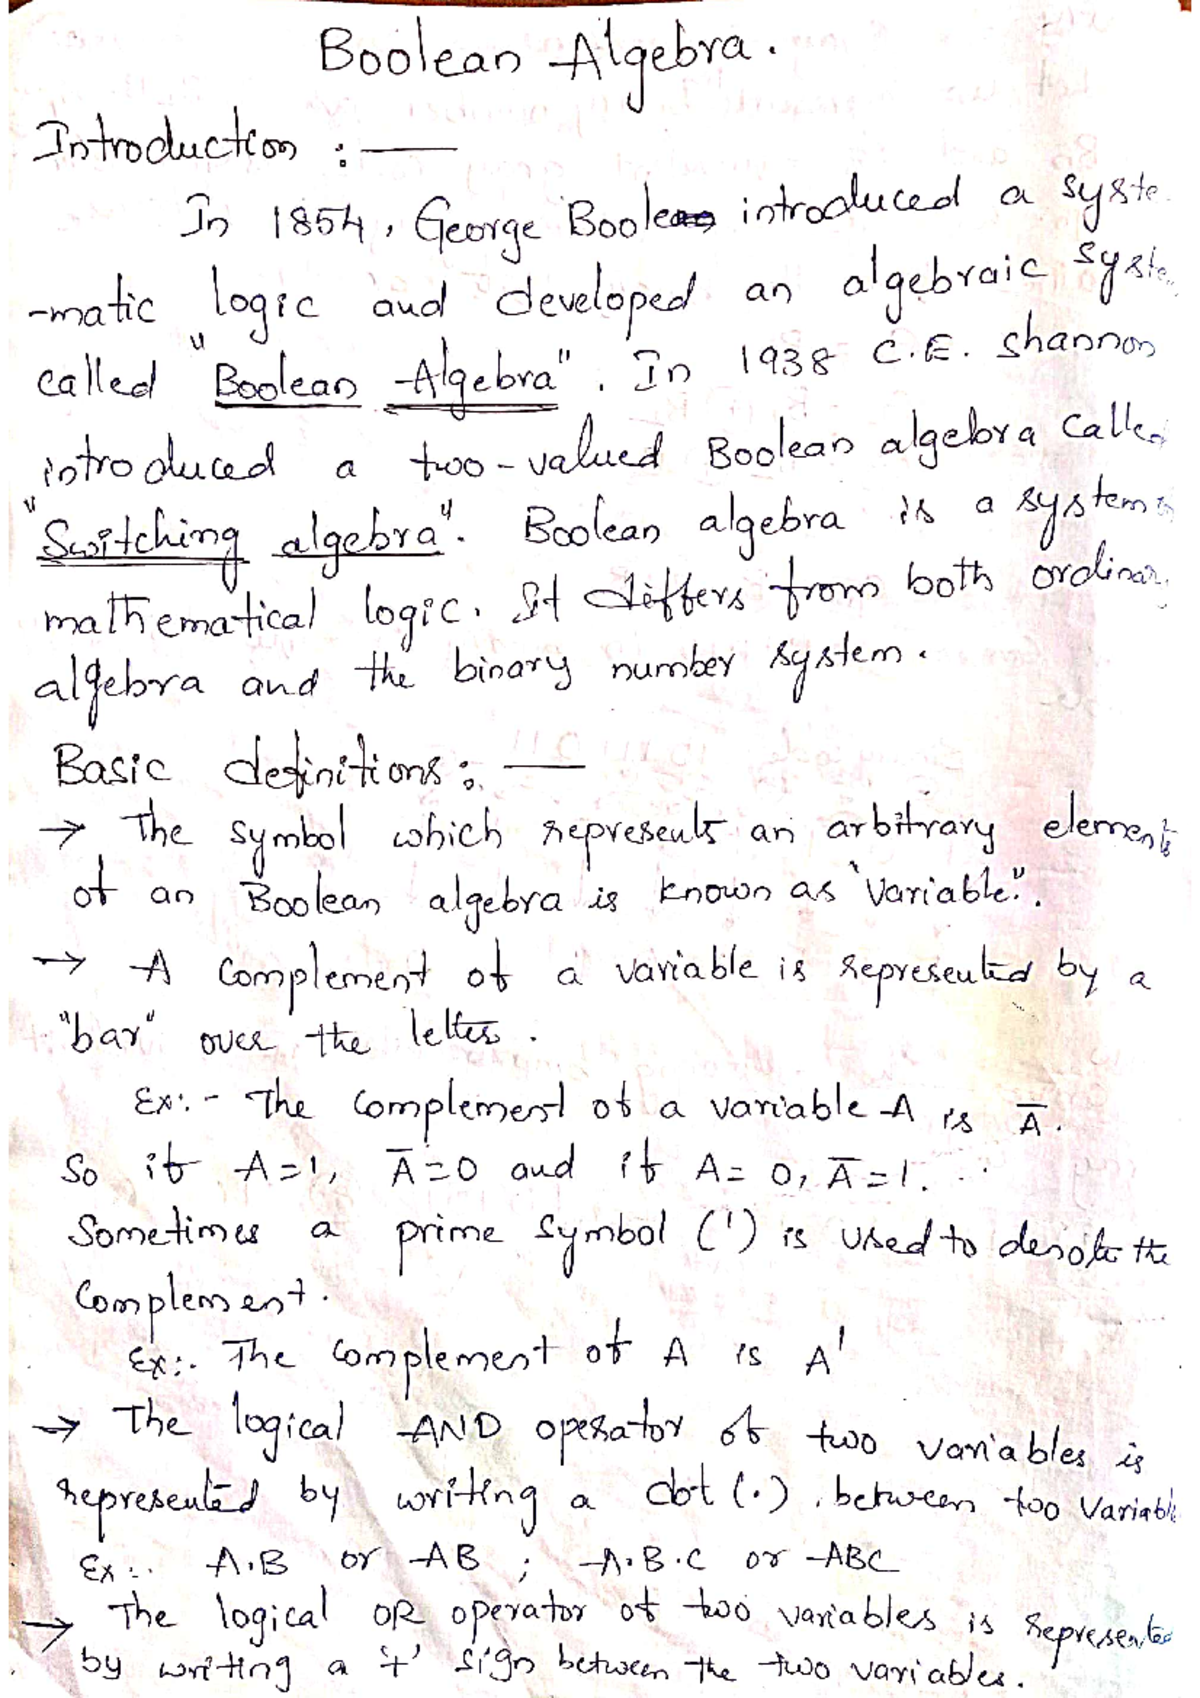 Boolean Algebra.
Introduction :—
In 1854, George Boole introduced a syste
-matic logic and developed an algebraic syste
called "Boolean Algebra". In 1938 C.E. Shannon
introduced a two-valued Boolean algebra calle
"Switching algebra". Boolean algebra is a system in
mathematical logic. It differs from both ordinar
algebra and the binary number system.
Basic definitions :—
→ The symbol which represents an arbitrary elements
of an Boolean algebra is known as "Variable".
→ A Complement of a variable is represented by a
"bar" over the letter.
Ex:- The Complement of a variable A is A̅.
So if A=1, A̅=0 and if A=0, A̅=1.
Sometimes a prime symbol (') is used to denote the
Complement.
Ex:. The Complement of A is A'
→ The logical AND operator of two variables is
represented by writing a dot (.) between two Variabl
Ex:. A.B or AB ; A.B.C or ABC
→ The logical OR operator of two variables is represente
by writing a '+' sign between the two variables.